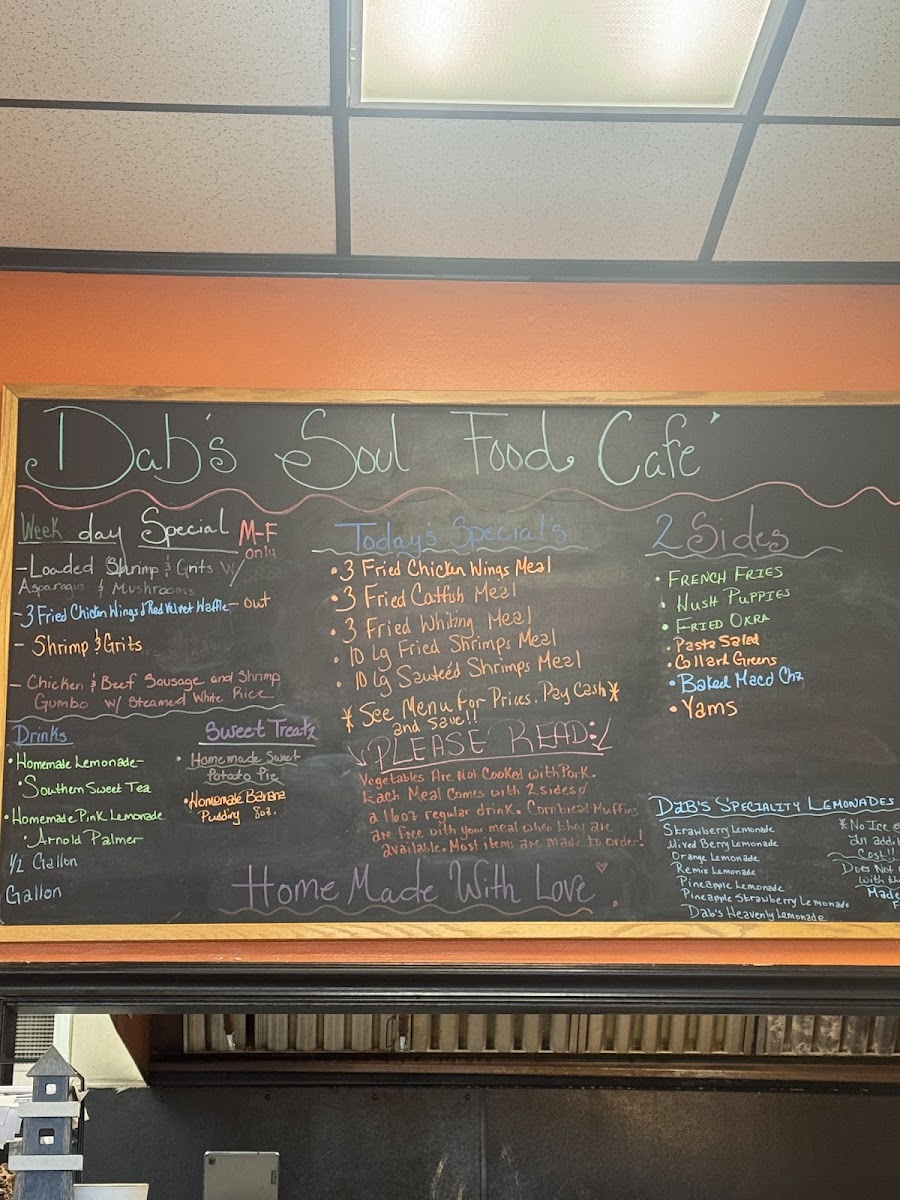 Dab's Soul Food Café
Week day Special M-F
only
-Loaded Shrimp & Grits w/
Asparagus & Mushrooms
-3 Fried Chicken Wings & Red Velvet Waffle- out
- Shrimp & Grits
- Chicken & Beef Sausage and Shrimp
Gumbo w/ Steamed White Rice
Drinks
• Homemade Lemonade-
• Southern Sweet Tea
• Homemade Pink Lemonade
• Arnold Palmer
1/2 Gallon
Gallon
Sweet Treatz
• Homemade Sweet
Potato Pie
• Homemade Banana
Pudding 8oz.
Today's Special's
• 3 Fried Chicken Wings Meal
• 3 Fried Catfish Meal
• 3 Fried Whiting Meal
• 10 Lg Fried Shrimps Meal
• 10 Lg Sauteéd Shrimps Meal
* See Menu For Prices. Pay Cash *
and Save!!
PLEASE READ:
Vegetables Are Not Cooked with Pork.
Each Meal Comes with 2 sides &
a 16oz regular drink. Cornbread Muffins
are free with your meal when they are
available. Most items are made to order!
Home Made With Love
2 Sides
• French Fries
• Hush Puppies
• Fried Okra
• Pasta Salad
• Collard Greens
• Baked Mac & Chz
• Yams
Dab's Speciality Lemonades
Strawberry Lemonade
Mixed Berry Lemonade
Orange Lemonade
Remix Lemonade
Pineapple Lemonade
Pineapple Strawberry Lemonade
Dab's Heavenly Lemonade
* No Ice @
an addi
Cost!!
Does Not
with th
Made
F